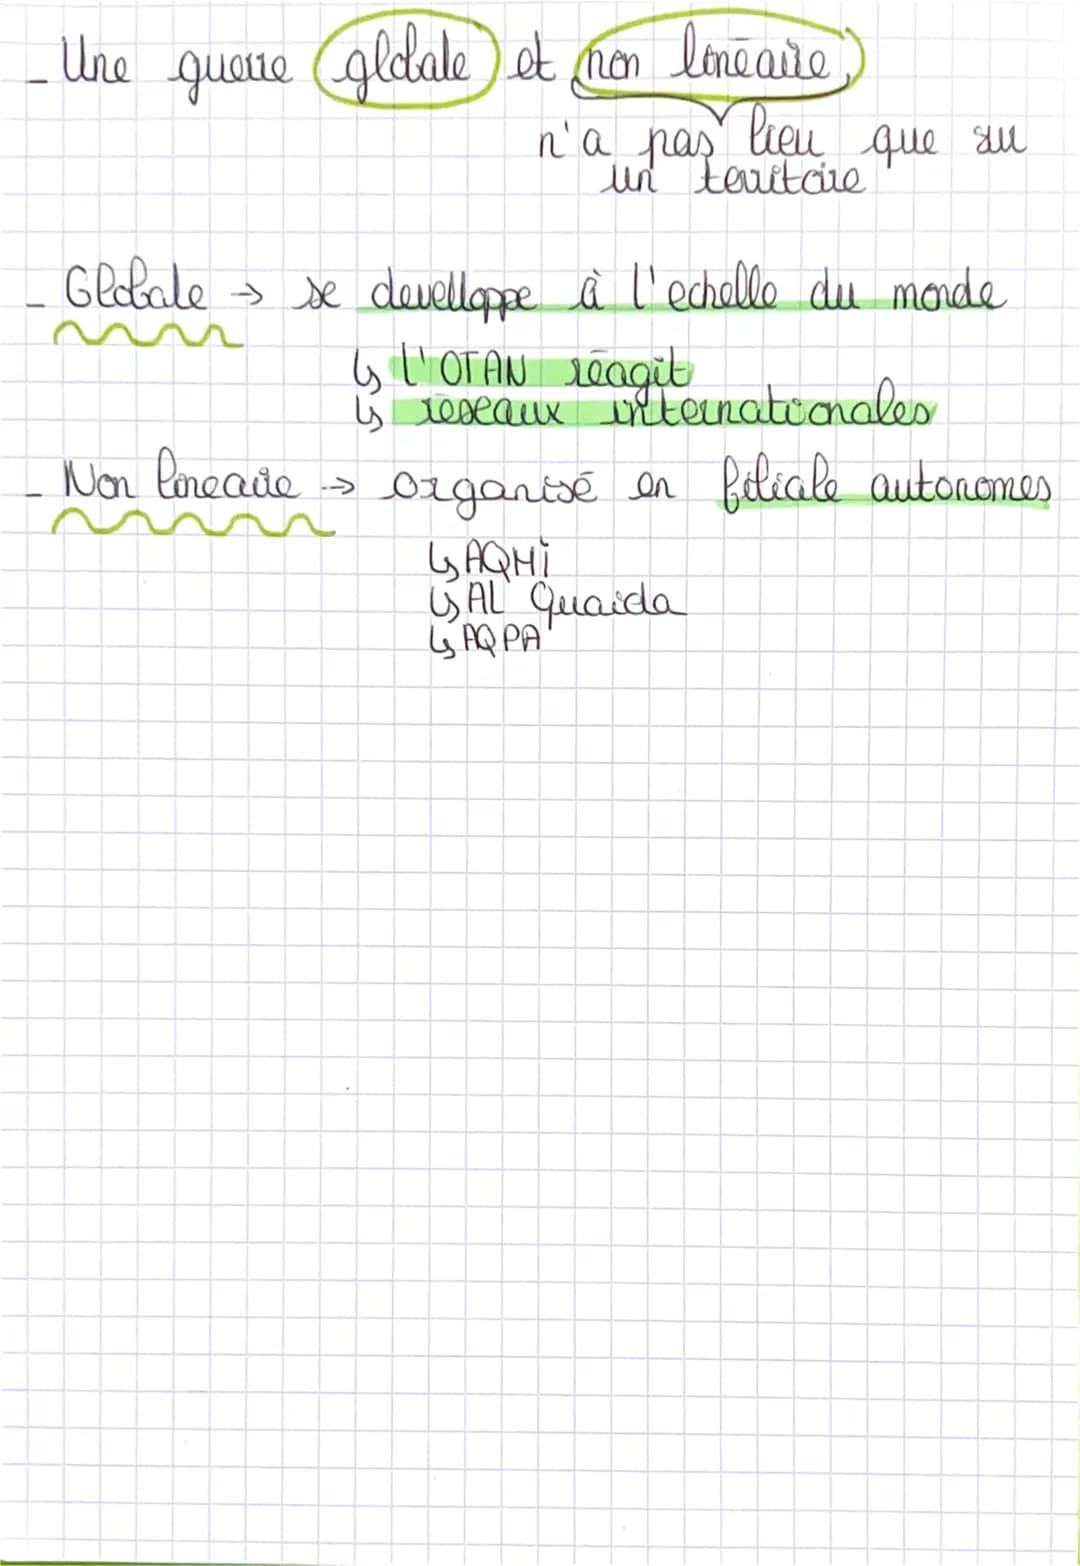 - Une guerre globale et non linéaire,
n'a pas lieu que sur
un territoire
- Globale → se develloppe à l'echelle du monde
↳ l'OTAN réagit
↳ réseaux internationales
- Non lineaire → organisé en filiale autonomes
↳ AQMi
↳ AL Quaida
↳ AQPA